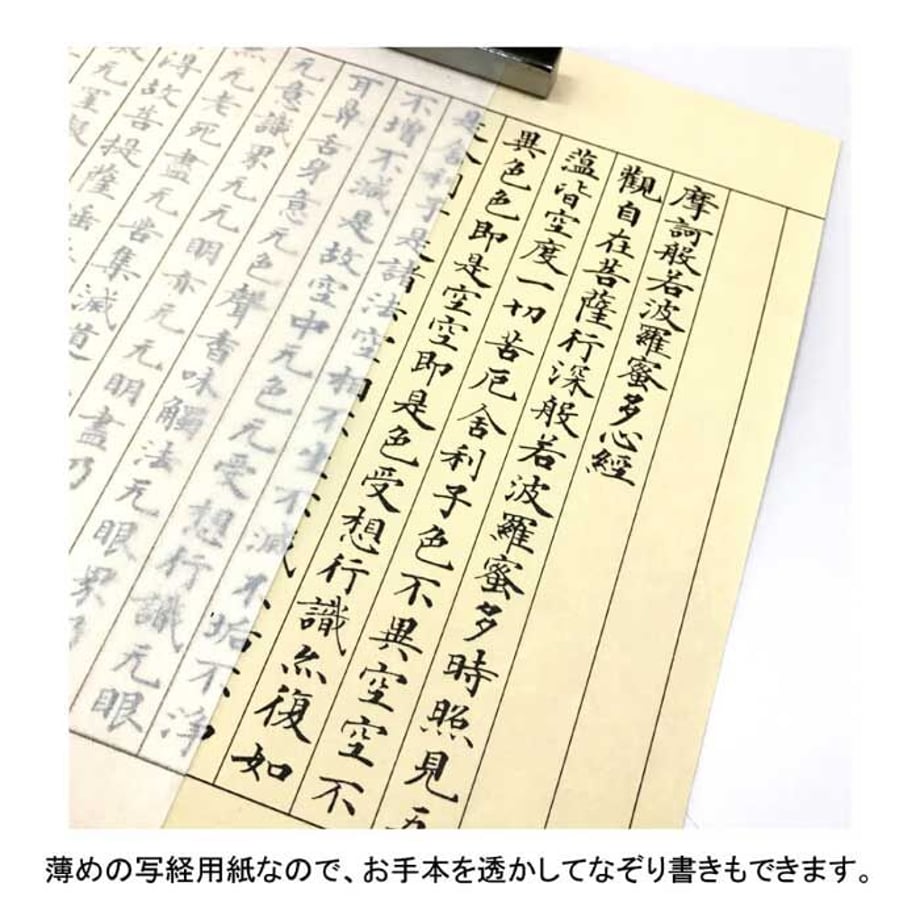 摩訶般若波羅蜜多心經
觀自在菩薩行深般若波羅蜜多時照見五
蕰皆空度一切苦厄舍利子色不異空空不
異色色即是空空即是色受想行識亦復如
是舍利子是諸法空相不生不滅不垢不淨
不增不減是故空中无色无受想行識无眼
耳鼻舌身意无色聲香味觸法无眼界乃
无意識界无无明亦无无明盡乃
无老死盡无苦集滅道
得故菩提薩埵
无罣
薄めの写経用紙なので、お手本を透かしてなぞり書きもできます。